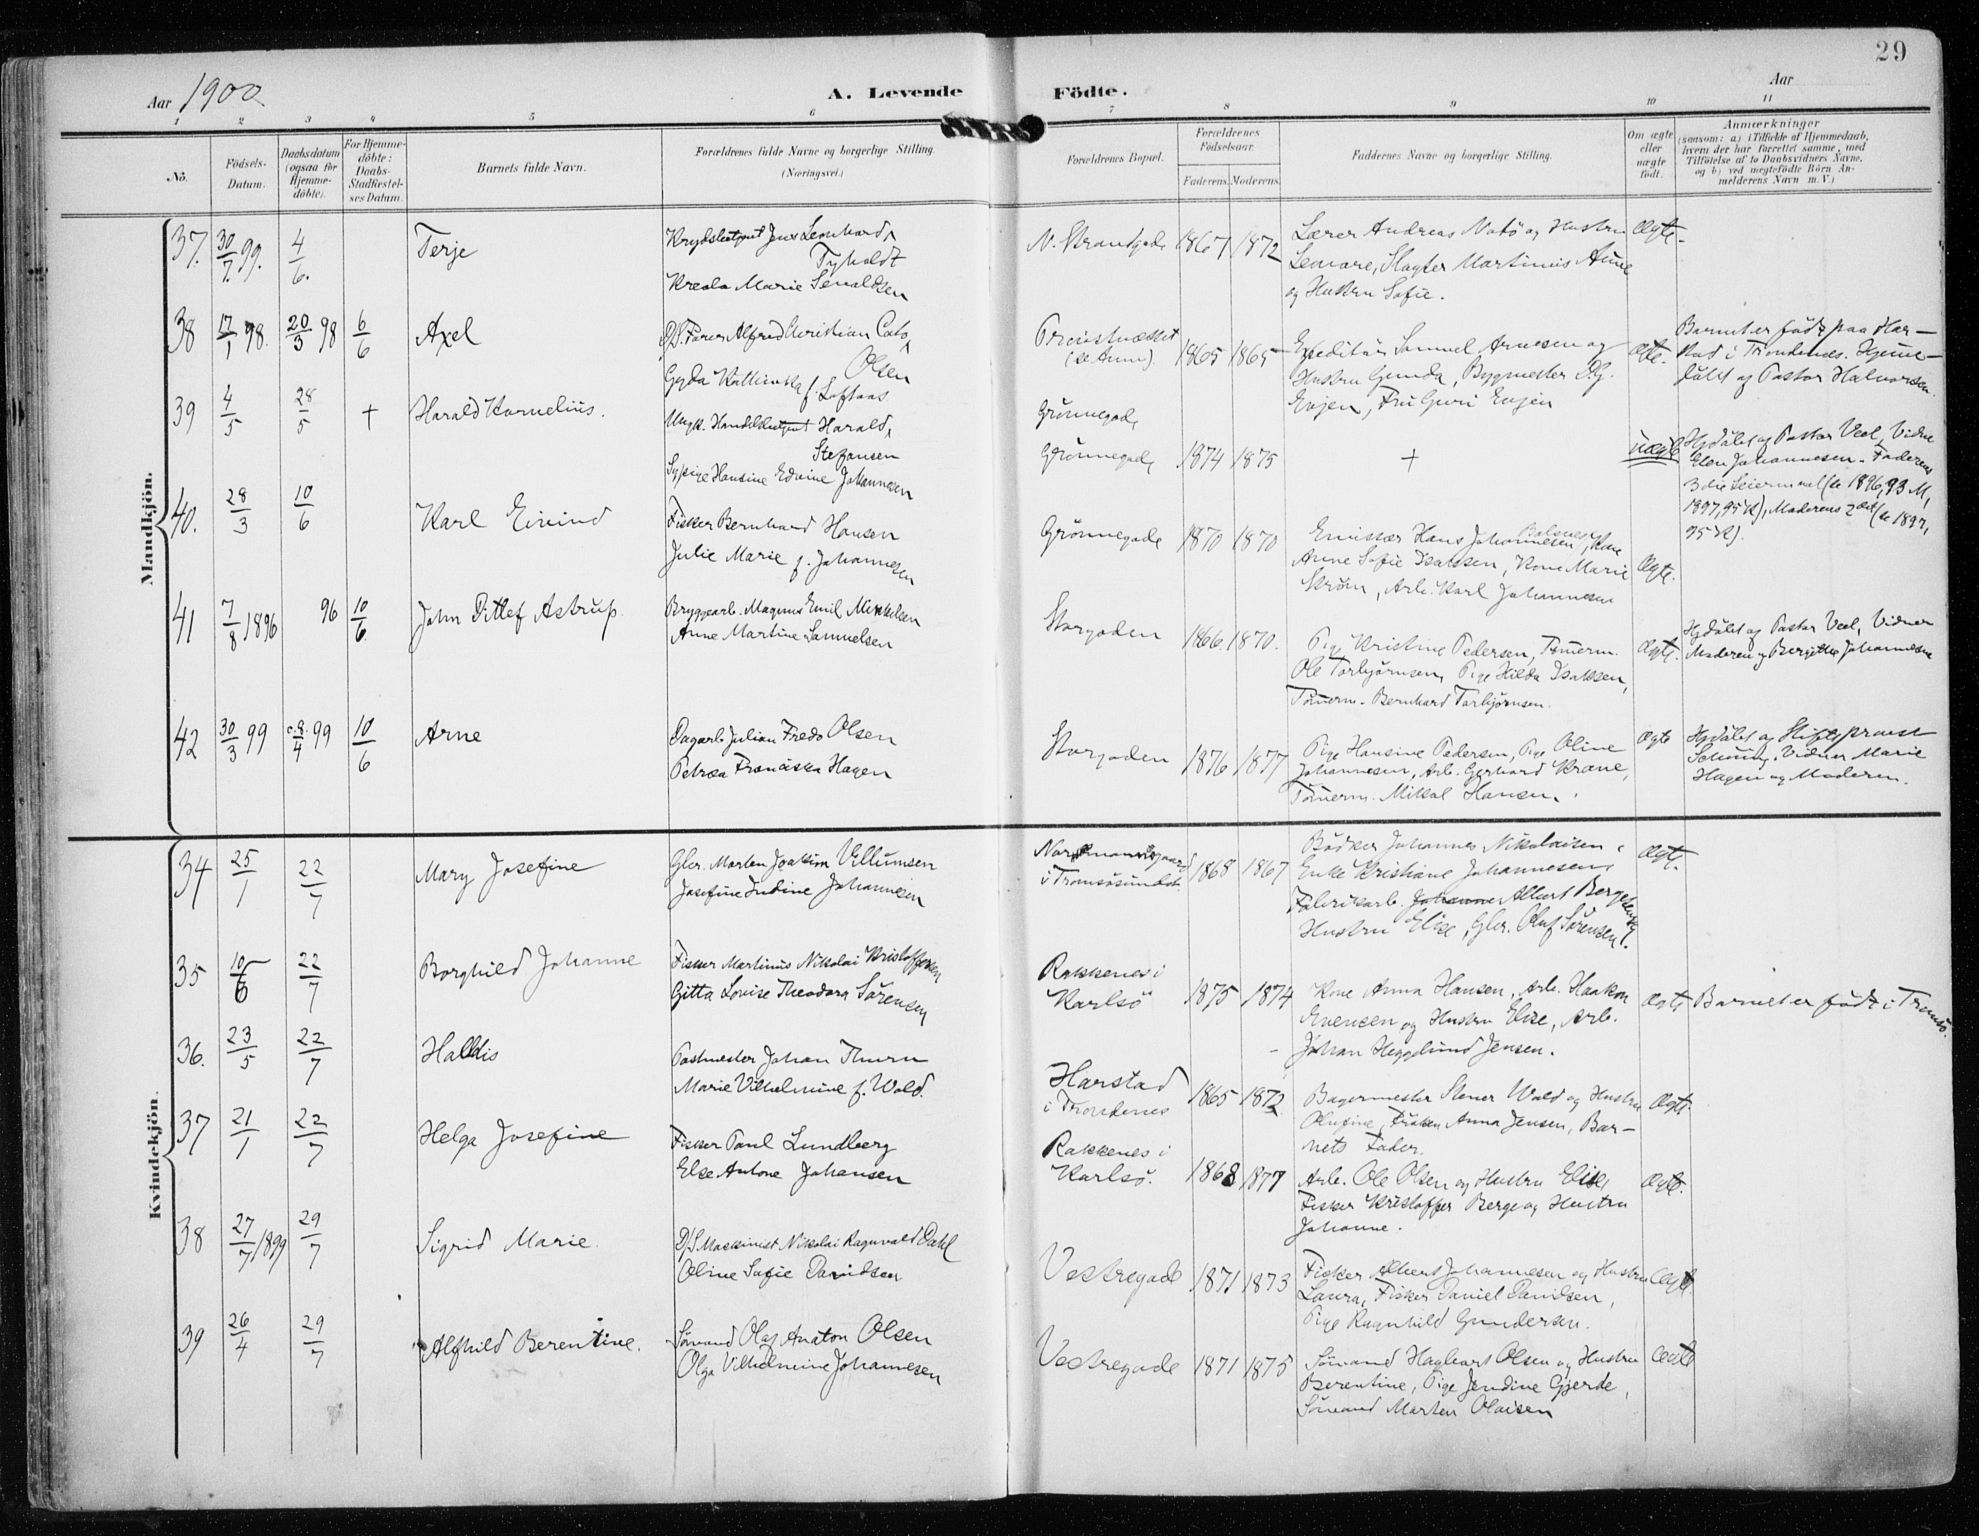 29
Aar 1900.
A. Levende Födte.
Aar
1 2 3 4 5 6 7 8 9 10 11
No.
Födsels-Datum.
Daabsdatum (ogsaa for Hjemmedöbte).
For Hjemmedöbte: Daabs-Stadfestelses Datum.
Barnets fulde Navn.
Forældrenes fulde Navne og borgerlige Stilling.
(Næringsvei.)
Forældrenes Bopæl.
Forældrenes Födselsaar.
Faderens. Moderens.
Faddernes Navne og borgerlige Stilling.
Om ægte eller uægte födt.
Anmærkninger
(saasom: a) i Tilfælde af Hjemmedaab,
hvem der har forrettet samme, med
Tilföielse af to Daabsvidners Navne,
og b) ved uægtefödte Börn An-
melderens Navn m. V.)
Mandkjön.
37. 30/7 99. 4/6. Terje
Jens Leonhard
Marie
N. Strandgade 1867 1872
Lærer Andreas og Hustru
Lenore, Slagter Martinus Aune
og Hustru Sofie.
Ægte.
38 17/1 98. 20/3 98 6/6 Axel
D/S. Fører Alfred Christian Cato
Olsen
Gyda f. Loftaas
1865 1865
Expeditör Samuel Arnesen og
Hustru Gunda, Bygmester
Evjen, Fru Guri Evjen
Ægte.
Barnet er födt paa Har-
stad i Trondenes. Hjemme-
döbt af Pastor Halvorsen.
39 4/5 28/5 + Harald Kornelius.
Ungk. Harald
Stefansen
Sypige Hansine Edvine Johannesen
Grønnegade
Grønnegade 1874 1875
+
uægte
Hjdöbt af Pastor Veel, Vidne
Elen Johannesen. Faderens
3die Leiermaal (se 1896, 93 M,
1897, 95 K), Moderens 2det (se 1897,
95 K).
40. 28/3 10/6 Karl Eivind
Fisker Bernhard Hansen
Julie Marie f. Johannesen
Grønnegade 1870 1870
Emissær Hans Johannesen, Kone
Anne Sofie Isaksen, Kone Marie
Strøm, Arb. Karl Johannesen
Ægte.
41 7/8 1896 96 10/6 John Ditlef Astrup.
Bryggearb. Magnus Emil Mikkelsen
Anne Martine Samuelsen
Storgaden 1866. 1870.
Pige Kristine Pedersen, Tømerm.
Ole Torbjørnsen, Pige Hilda Isaksen,
Tømerm. Bernhard Torbjørnsen.
Ægte.
Hjdöbt af Pastor Veel, Vidner
Moderen og Bergitte Johannesen
42 30/3 99 c. 8/4 99 10/6 Arne
Dagarb. Julian Fredo Olsen
Petrea Franciska Hagen
Storgaden 1876 1877
Pige Hansine Pedersen, Pige Oline
Johannesen, Arb. Gerhard Krane,
Tømerm. Mikal Hansen.
Ægte
Hjdöbt af Stiftsprovst
Vidner Marie
Hagen og Moderen.
Kvindekjön.
34 25/1 22/7 Mary Josefine
Gbr. Morten Joakim Villumsen
Josefine Indine Johannesen
i Tromsøsundet 1868 1867
Bödker Johannes Nikolaisen,
Enke Kristiane Johannesen,
Fabrikarb. Albert Bergersen
Hustru Elise, Gbr. Oluf Sörensen.
Ægte.
35 10/6 22/7 Borghild Johanne
Fisker Martinus Nikolai Kristoffersen
Gitta Lovise Theodora Sörensen
Rakkenes i
Karlsö 1875 1874
Kone Anna Hansen, Arb. Haakon
Evensen og Hustru Elise, Arb.
Johan Heggelund Jensen.
Ægte
Barnet er födt i Tromsö.
36. 23/5 22/7 Halldis
Postmester Johan Thurn
Marie Vilhelmine f. Wold.
Harstad
i Trondenes 1865 1872
Bagermester Stener Wold og Hustru
Olufine, Frøken Anna Jensen, Bar-
nets Fader.
Ægte
37 21/1 22/7 Helga Josefine
Fisker Paul Lundberg
Else Antone Johansen
Rakkenes i
Karlsö. 1868 1877
Arb. Ole Olsen og Hustru Elise,
Fisker Kristoffer Berge og Hustru
Johanne.
Ægte.
38 27/7 1899 29/7 Sigrid Marie.
D/S Maskinist Nikolai Ragnvald Dahl
Oline Sofie Davidsen
Vestregade 1871 1873
Fisker Albert Johannesen og Hustru
Laura, Fisker Daniel Davidsen,
Pige Ragnhild Gundersen.
Ægte.
39 26/4 29/7 Alfhild Berentine.
Sömand Olaf Anaton Olsen
Olga Vilhelmine Johannesen
Vestregade 1871 1875
Sömand Hagbart Olsen og Hustru
Berentine, Pige Jendine Gjerde,
Sömand Morten Olaisen
Ægte